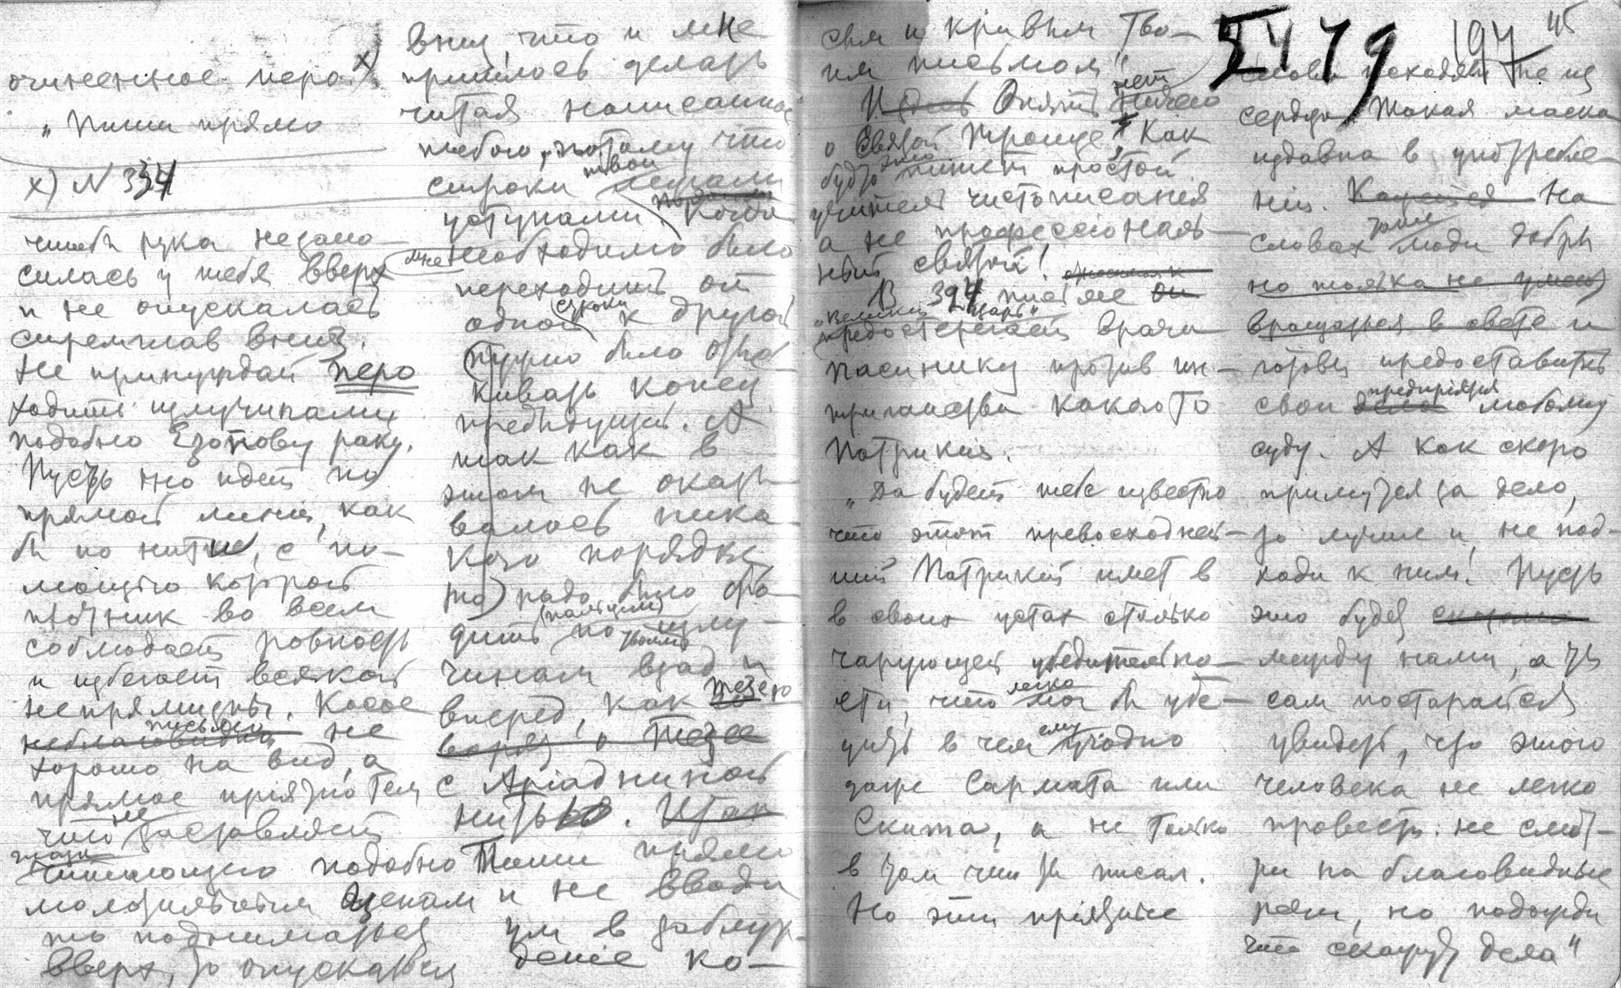 очиненное перо x)
"Пиши прямо
x) N 334
чтобы рука не зано-
силась у тебя вверх
и не опускалась
стремглав вниз.
Не принуждай перо
ходить излучинами
подобно Езопову раку.
Пусть оно идет по
прямой линии, как
бы по нитке, с по-
мощью которой
плотник во всем
соблюдает ровность
и избегает всякой
непрямизны. Косое
письмо не
хорошо на вид, а
прямое приятно тем
что не заставляет
читающего подобно
молотильным
то подниматься
вверх, то опускаться
вниз, что и мне
пришлось делать
читая написанное
тобою, потому что
строки твои
уступами. Когда
мне необходимо было
переходить от
одной строки к другой
трудно было оты-
кивать конец
предыдущей. А
так как в
этом не оказы-
валось ника-
кого порядка
то надо было хо-
дить (пальцем) по твоим излу-
чинам взад и
вперед, как Тезею
с Аріадниной
нитью.
Пиши прямо
и не вводи
ум в заблуж-
деніе ко-
сым и кривым тво-
им письмом"
Опять нет ничего
о Святой Троице, Как
будто это пишет простой
учитель чистописания
а не профессіональ-
ный святой!
В 394 письме
"великій царь"
предостерегает врача
Пасинику против ин-
триганства какого то
Патрикия.
"Да будет тебе известно
что этот превосходней-
ший Патрикий имет в
в своих устах столько
чарующей убедительно-
сти, что легко мог бы убе-
дить в чем ему угодно
даже Сармата или
Скита, а не только
в том чем ты писал.
Но эти пріятные
5479
197 45
слова исходят не из
сердца. Такая маска
издавна в употребле
ніи. На
словах такие люди добры
но только не умеют
вращаться в свете и
готовы предоставить
свои предпріятія любому
суду. А как скоро
примутся за дело,
то лучше и не под-
ходи к ним! Пусть
это будет
между нами, а ты
сам постарайся
увидеть, что этого
человека не легко
провесть. не смот-
ри на благовидные
речи, но подожди
что скажут дела"